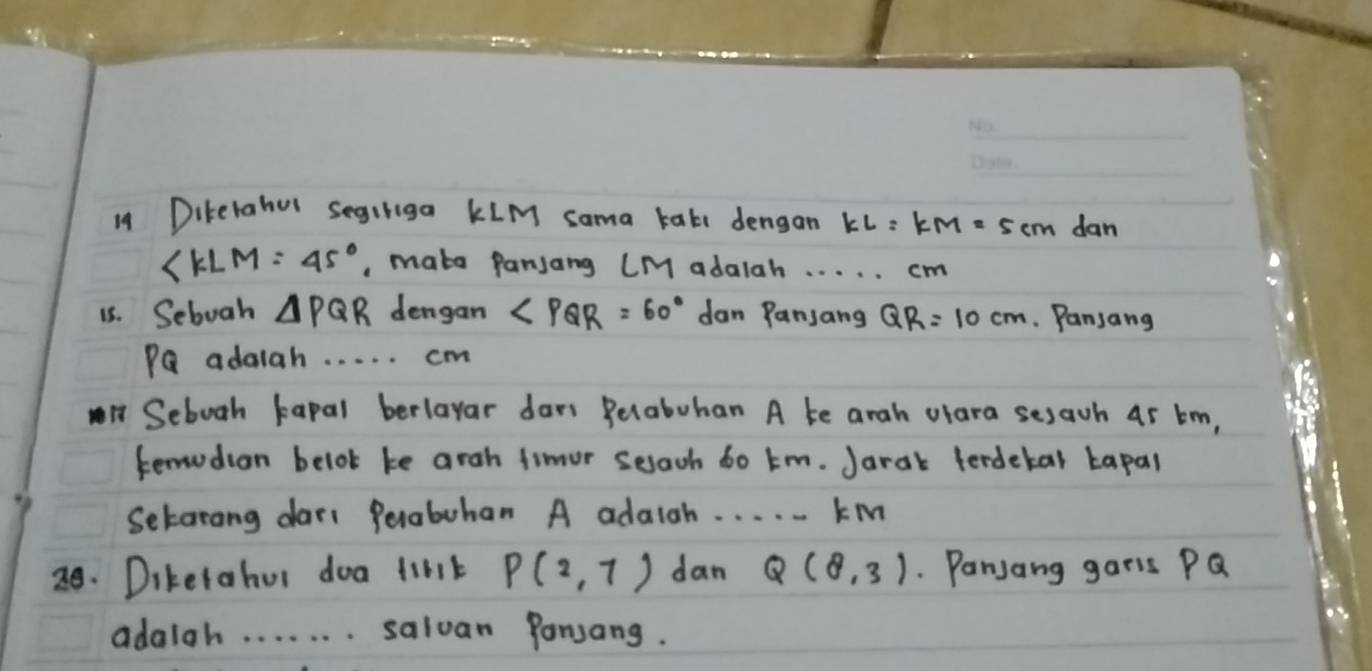 No.
Date.
14 Diketahui segitiga KLM sama kaki dengan KL = KM = 5 cm dan
<KLM = 45°, maka Panjang LM adalah ..... cm
15. Sebuah ΔPQR dengan < PQR = 60° dan Panjang QR = 10 cm. Panjang
PQ adalah ..... cm
Sebuah kapal berlayar dari Pelabuhan A ke arah utara sejauh 45 km,
kemudian belok ke arah timur sejauh 60 km. Jarak terdekat kapal
Sekarang dari Pelabuhan A adalah ..... km
20. Diketahui dua titik P(2,7) dan Q(8,3). Panjang garis PQ
adalah ....... satuan Panjang.